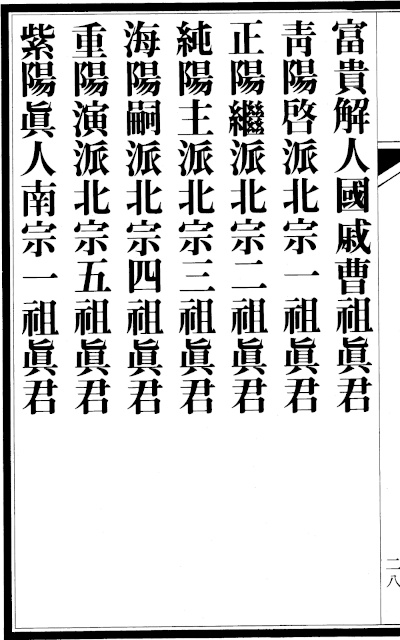 富貴解人國戚曹祖眞君
靑陽啓派北宗一祖眞君
正陽繼派北宗二祖眞君
純陽主派北宗三祖眞君
海陽嗣派北宗四祖眞君
重陽演派北宗五祖眞君
紫陽眞人南宗一祖眞君
二八